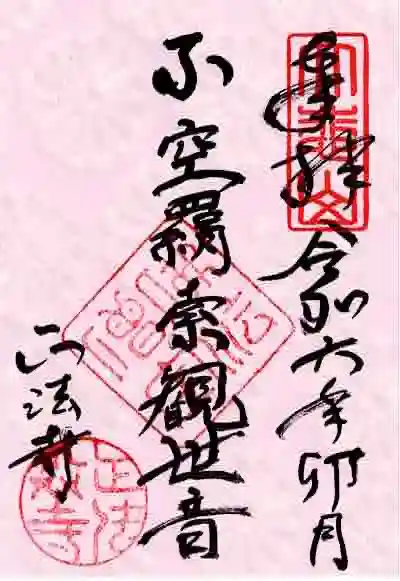 奉拝 令和六年卯月
不空羂索観世音
正法寺